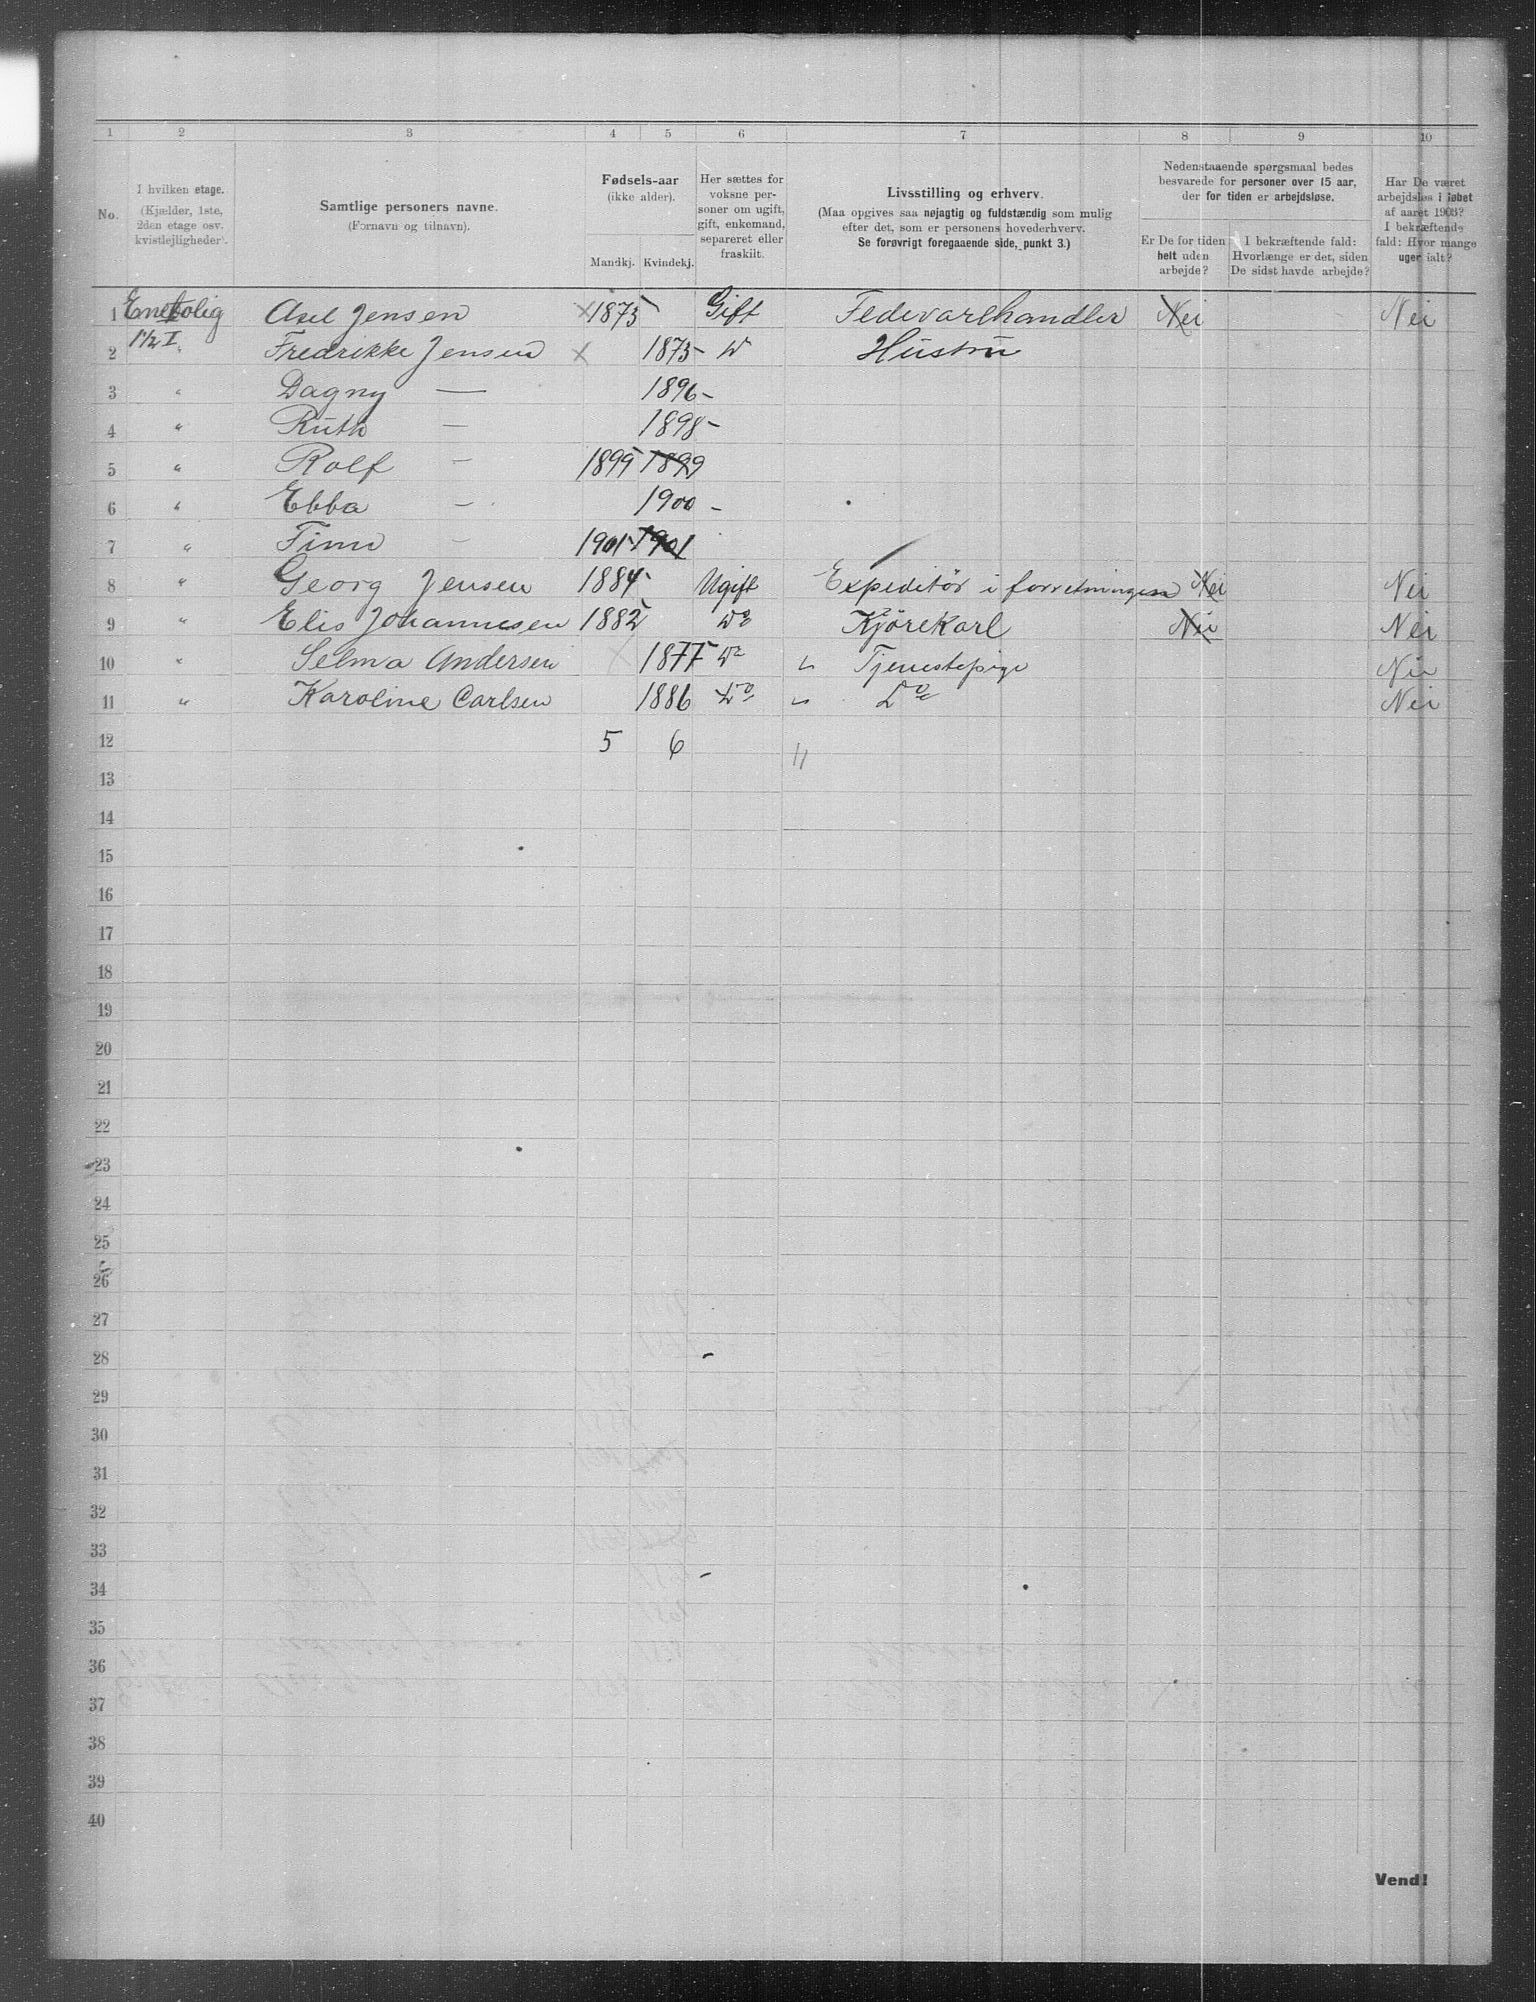 1 2 3 4 5 6 7 8 9 10
No.
I hvilken etage.
(Kjælder, 1ste,
2den etage osv.
kvistlejligheder).
Samtlige personers navne.
(Fornavn og tilnavn).
Fødsels-aar
(ikke alder).
Mandkj. Kvindekj.
Her sættes for
voksne per-
soner om ugift,
gift, enkemand,
separeret eller
fraskilt.
Livsstilling og erhverv.
(Maa opgives saa nøjagtig og fuldstændig som mulig
efter det, som er personens hovederhverv.
Se forøvrigt foregaaende side, punkt 3.)
Nedenstaaende spørgsmaal bedes
besvarede for personer over 15 aar,
der for tiden er arbejdsløse.
Er De for tiden
helt uden
arbejde?
I bekræftende fald:
Hvorlænge er det, siden
De sidst havde arbejde?
Har De været
arbejdsløs i løbet
af aaret 1903?
I bekræftende
fald: Hvor mange
uger ialt?
1 Enebolig Axel Jensen × 1873 Gift Fedevarehandler Nei Nei
2 1 1/2 I " Fredrikke Jensen × 1873 - D Hustru
3 " Dagny — 1896 -
4 " Ruth — 1898 -
5 " Rolf — 1899 1899
6 " Ebba — 1900 -
7 " Finn — 1901 - 1901
8 " Georg Jensen 1884 - Ugift Expeditör i forretningen Nei Nei
9 " Elis Johannesen 1882 Do Kjörekarl Nei Nei
10 " Selma Andersen × 1877 Do " Tjenestepige Nei
11 " Karoline Carlsen 1886 Do " Do Nei
12 5 6 11
13
14
15
16
17
18
19
20
21
22
23
24
25
26
27
28
29
30
31
32
33
34
35
36
37
38
39
40
Vend!